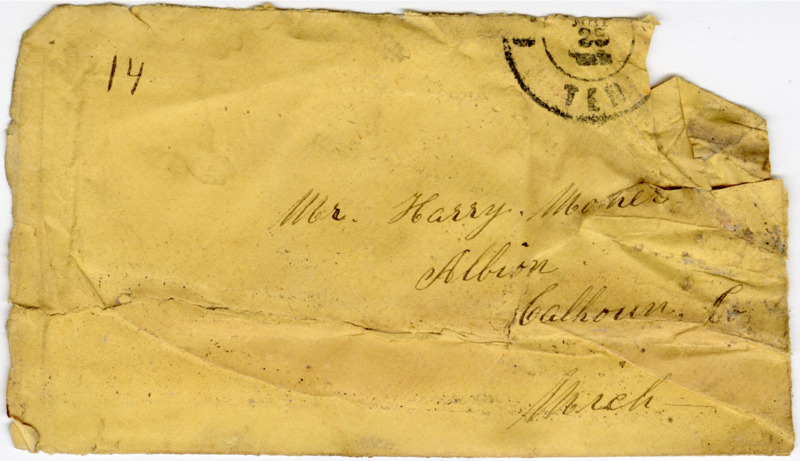 14
TEN
Mr. Harry. Moher.
Albion.
Calhoun. Co
Mich